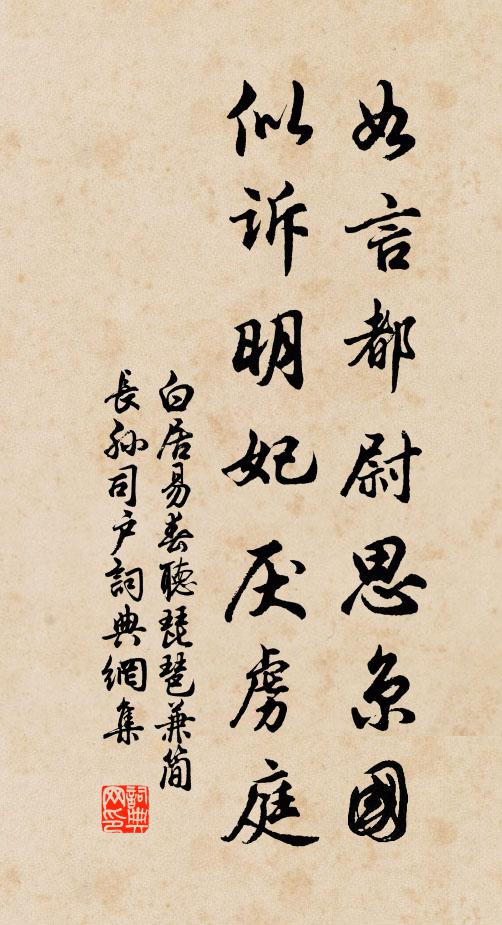 如言都尉思京國
似訴明妃厌虜庭
白居易春聽琵琶兼簡
長孙司户詞典網集
詞典网印